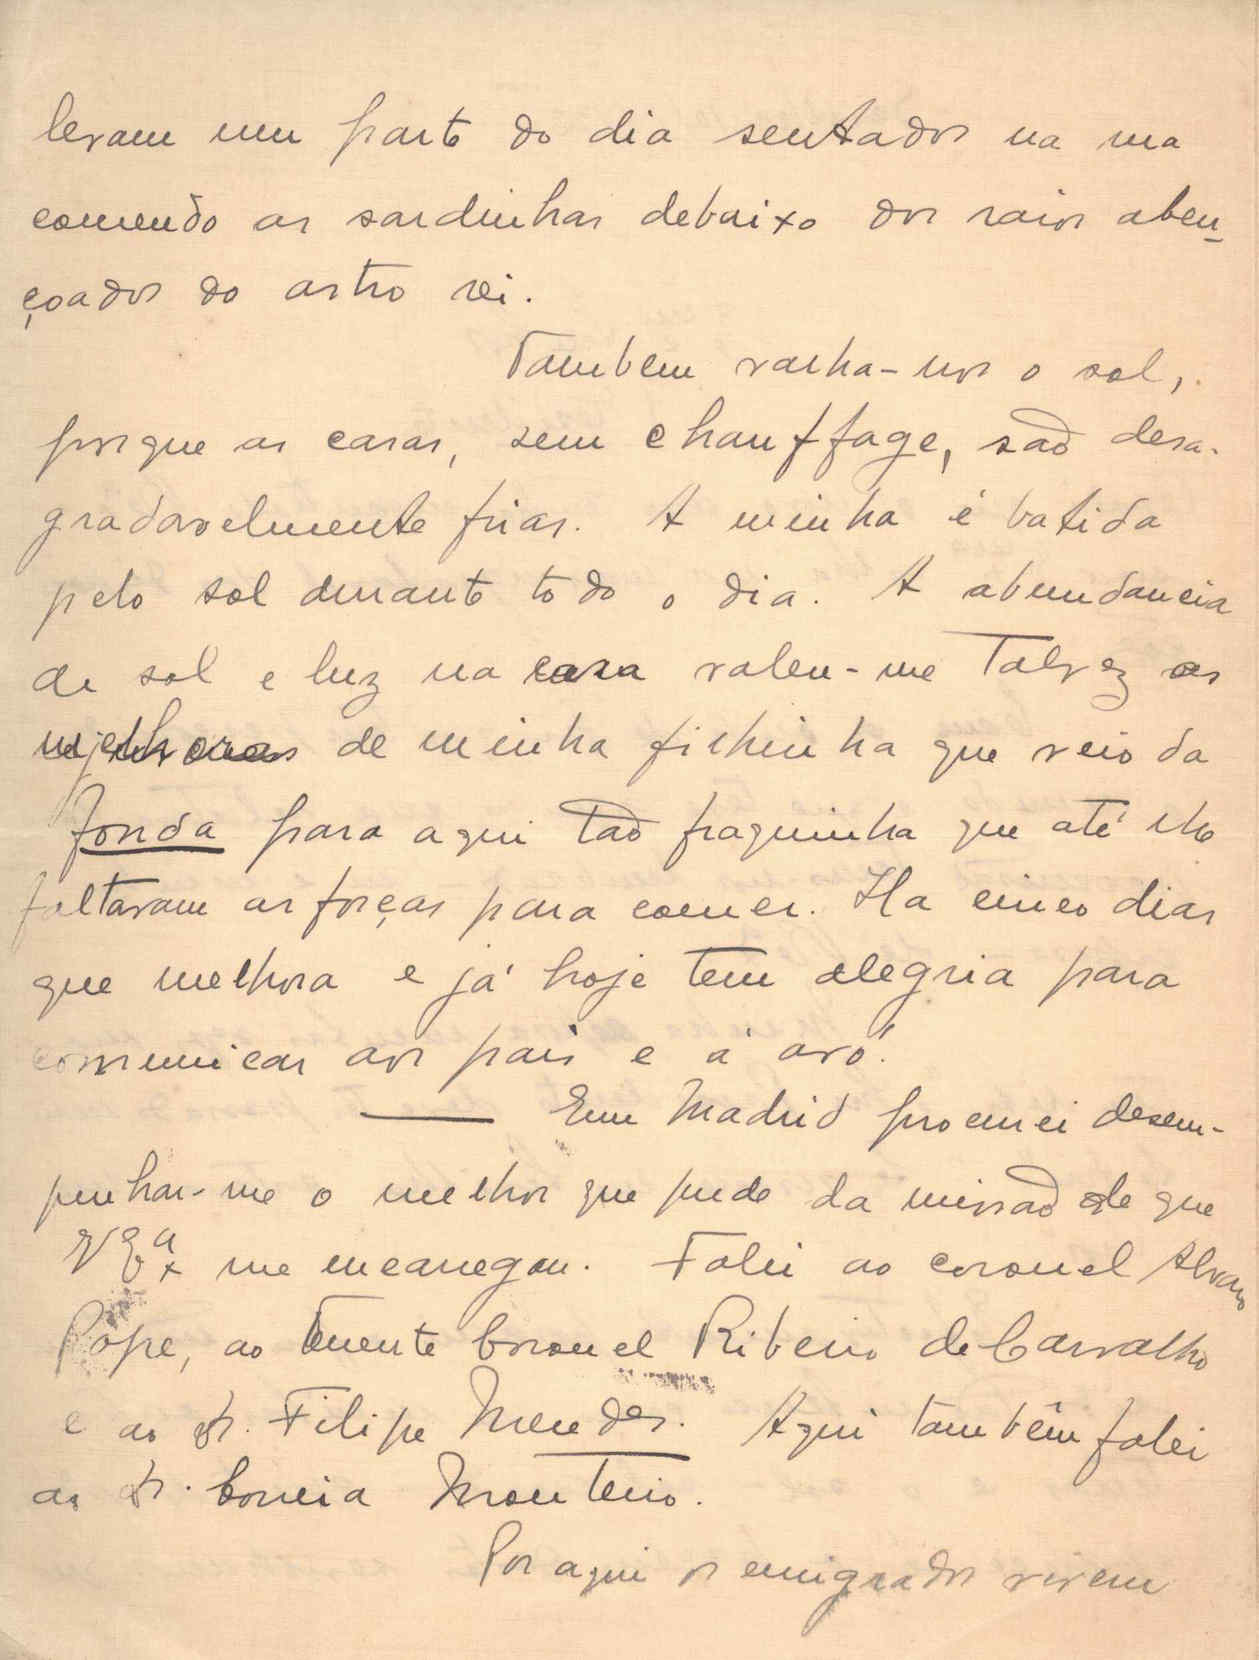 levam um parte do dia sentados na rua
comendo as sardinhas debaixo dos raios aben-
çoados do astro rei.
Tambem racha-nos o sol,
porque as casas, sem chauffage, são desa-
gradavelmente frias. A minha é batida
pelo sol durante todo o dia. A abundancia
de sol e luz na casa valeu-me talvez as
melhoras de minha filhinha que veio da
fonda para aqui tão fraquinha que até lhe
faltavam as forças para comer. Ha cinco dias
que melhora e já hoje tem alegria para
comunicar aos pais e á avó.
— Em Madrid procurei desem-
penhar-me o melhor que pude da missão de que
V Exª me encarregou. Falei ao coronel Alvaro
Pope, ao tenente coronel Ribeiro de Carvalho
e ao dr. Filipe Mendes. Aqui tambêm falei
ao dr. Correia Monteiro.
Por aqui os emigrados vivem